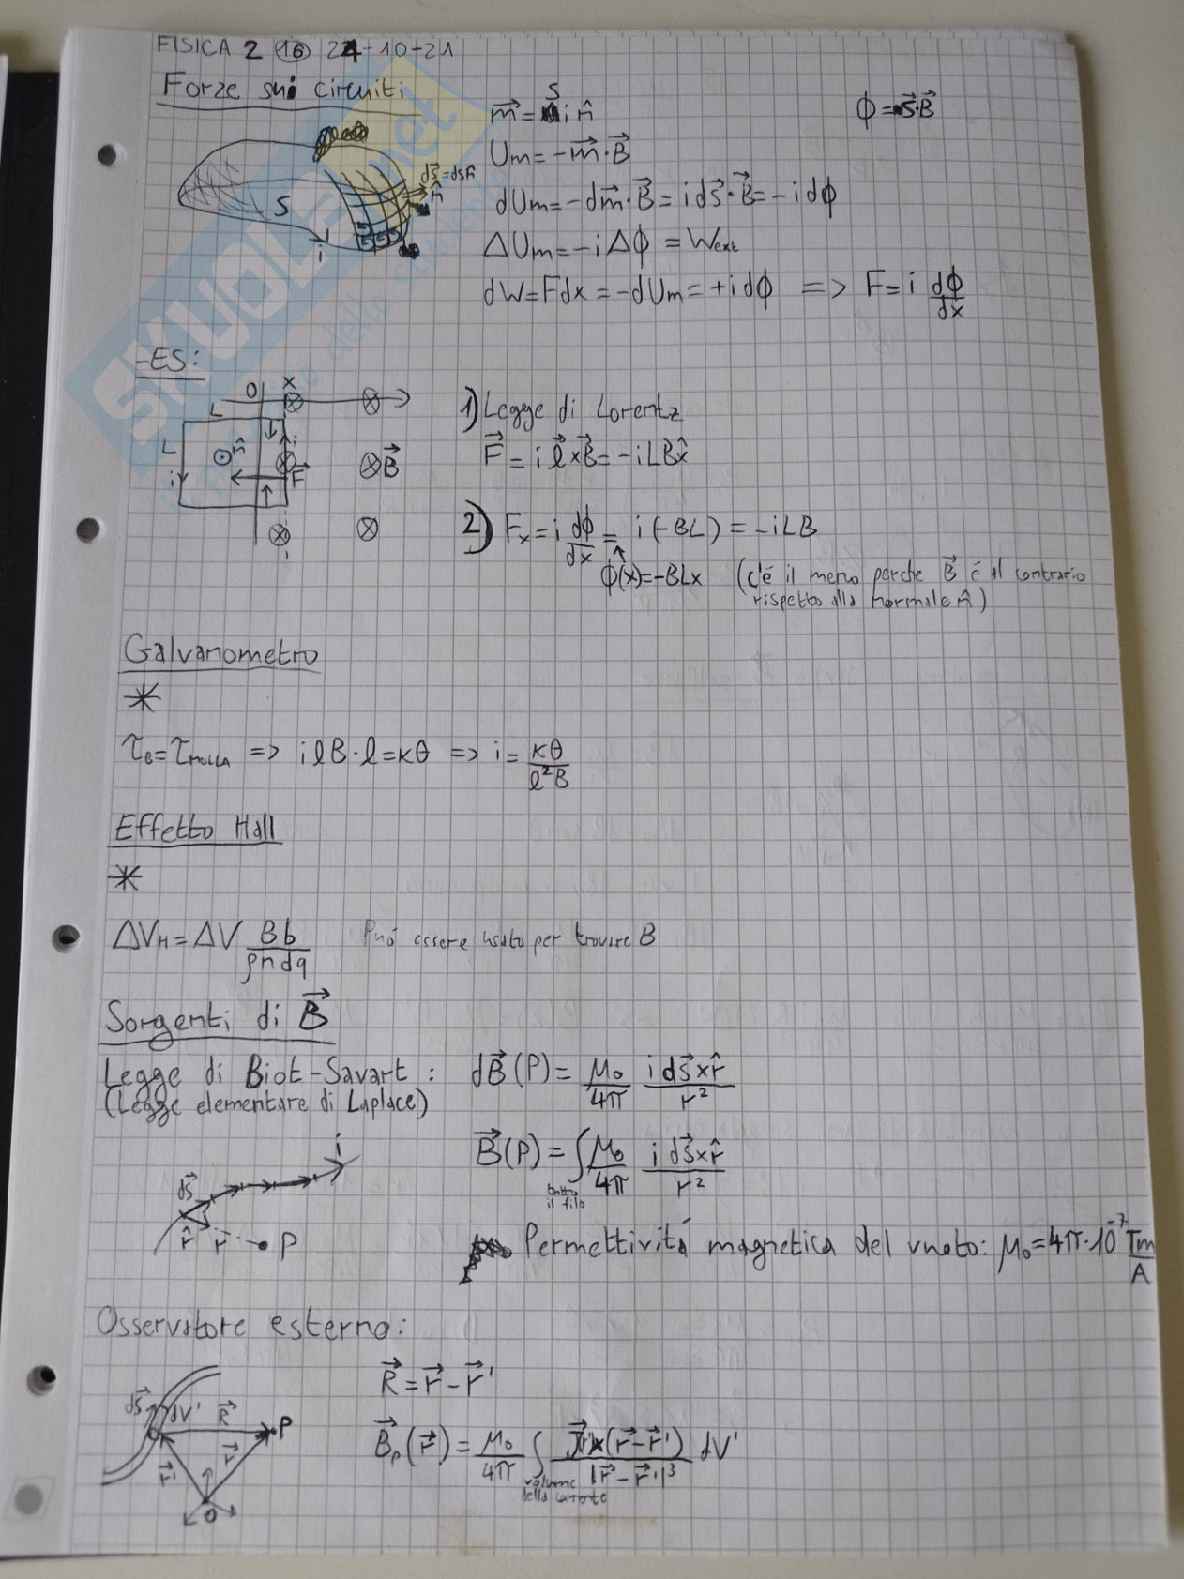 FISICA 2 (16) 24-10-21
Forze sui circuiti
m⃗ = S i n̂
ϕ = S⃗·B⃗
Um = -m⃗·B⃗
dS⃗=dSn̂
n̂
S
i
dUm = -dm⃗·B⃗ = i dS⃗·B⃗ = -i dϕ
ΔUm = -i Δϕ = Wext
dW = Fdx = -dUm = +i dϕ => F = i dϕ/dx
-ES:
O x
L
L
i
n̂
F⃗
B⃗
1) Legge di Lorentz
F⃗ = i l⃗ x B⃗ = -iLBx̂
2) Fx = i dϕ/dx = i(-BL) = -iLB
ϕ(x) = -BLx (c'è il meno perché B⃗ è il contrario
rispetto alla normale n̂)
Galvanometro
*
τB = τmolla => i l B · l = κθ => i = κθ/l²B
Effetto Hall
*
ΔVH = ΔV Bb/ρndq Può essere usato per trovare B
Sorgenti di B⃗
Legge di Biot-Savart : dB⃗(P) = μ₀/4π i ds⃗ x r̂/r²
(Legge elementare di Laplace)
B⃗(P) = ∫ μ₀/4π i ds⃗ x r̂/r²
tutto
il filo
i
ds⃗
r̂ r P
Permettività magnetica del vuoto: μ₀ = 4π·10⁻⁷ Tm/A
Osservatore esterno:
R⃗ = r⃗ - r⃗'
ds⃗ dV' R⃗ P
r⃗' r⃗
O
B⃗p(r⃗) = μ₀/4π ∫ J⃗ x (r⃗ - r⃗')/|r⃗ - r⃗'|³ dV'
volume
della corrente
SKUOLA.net